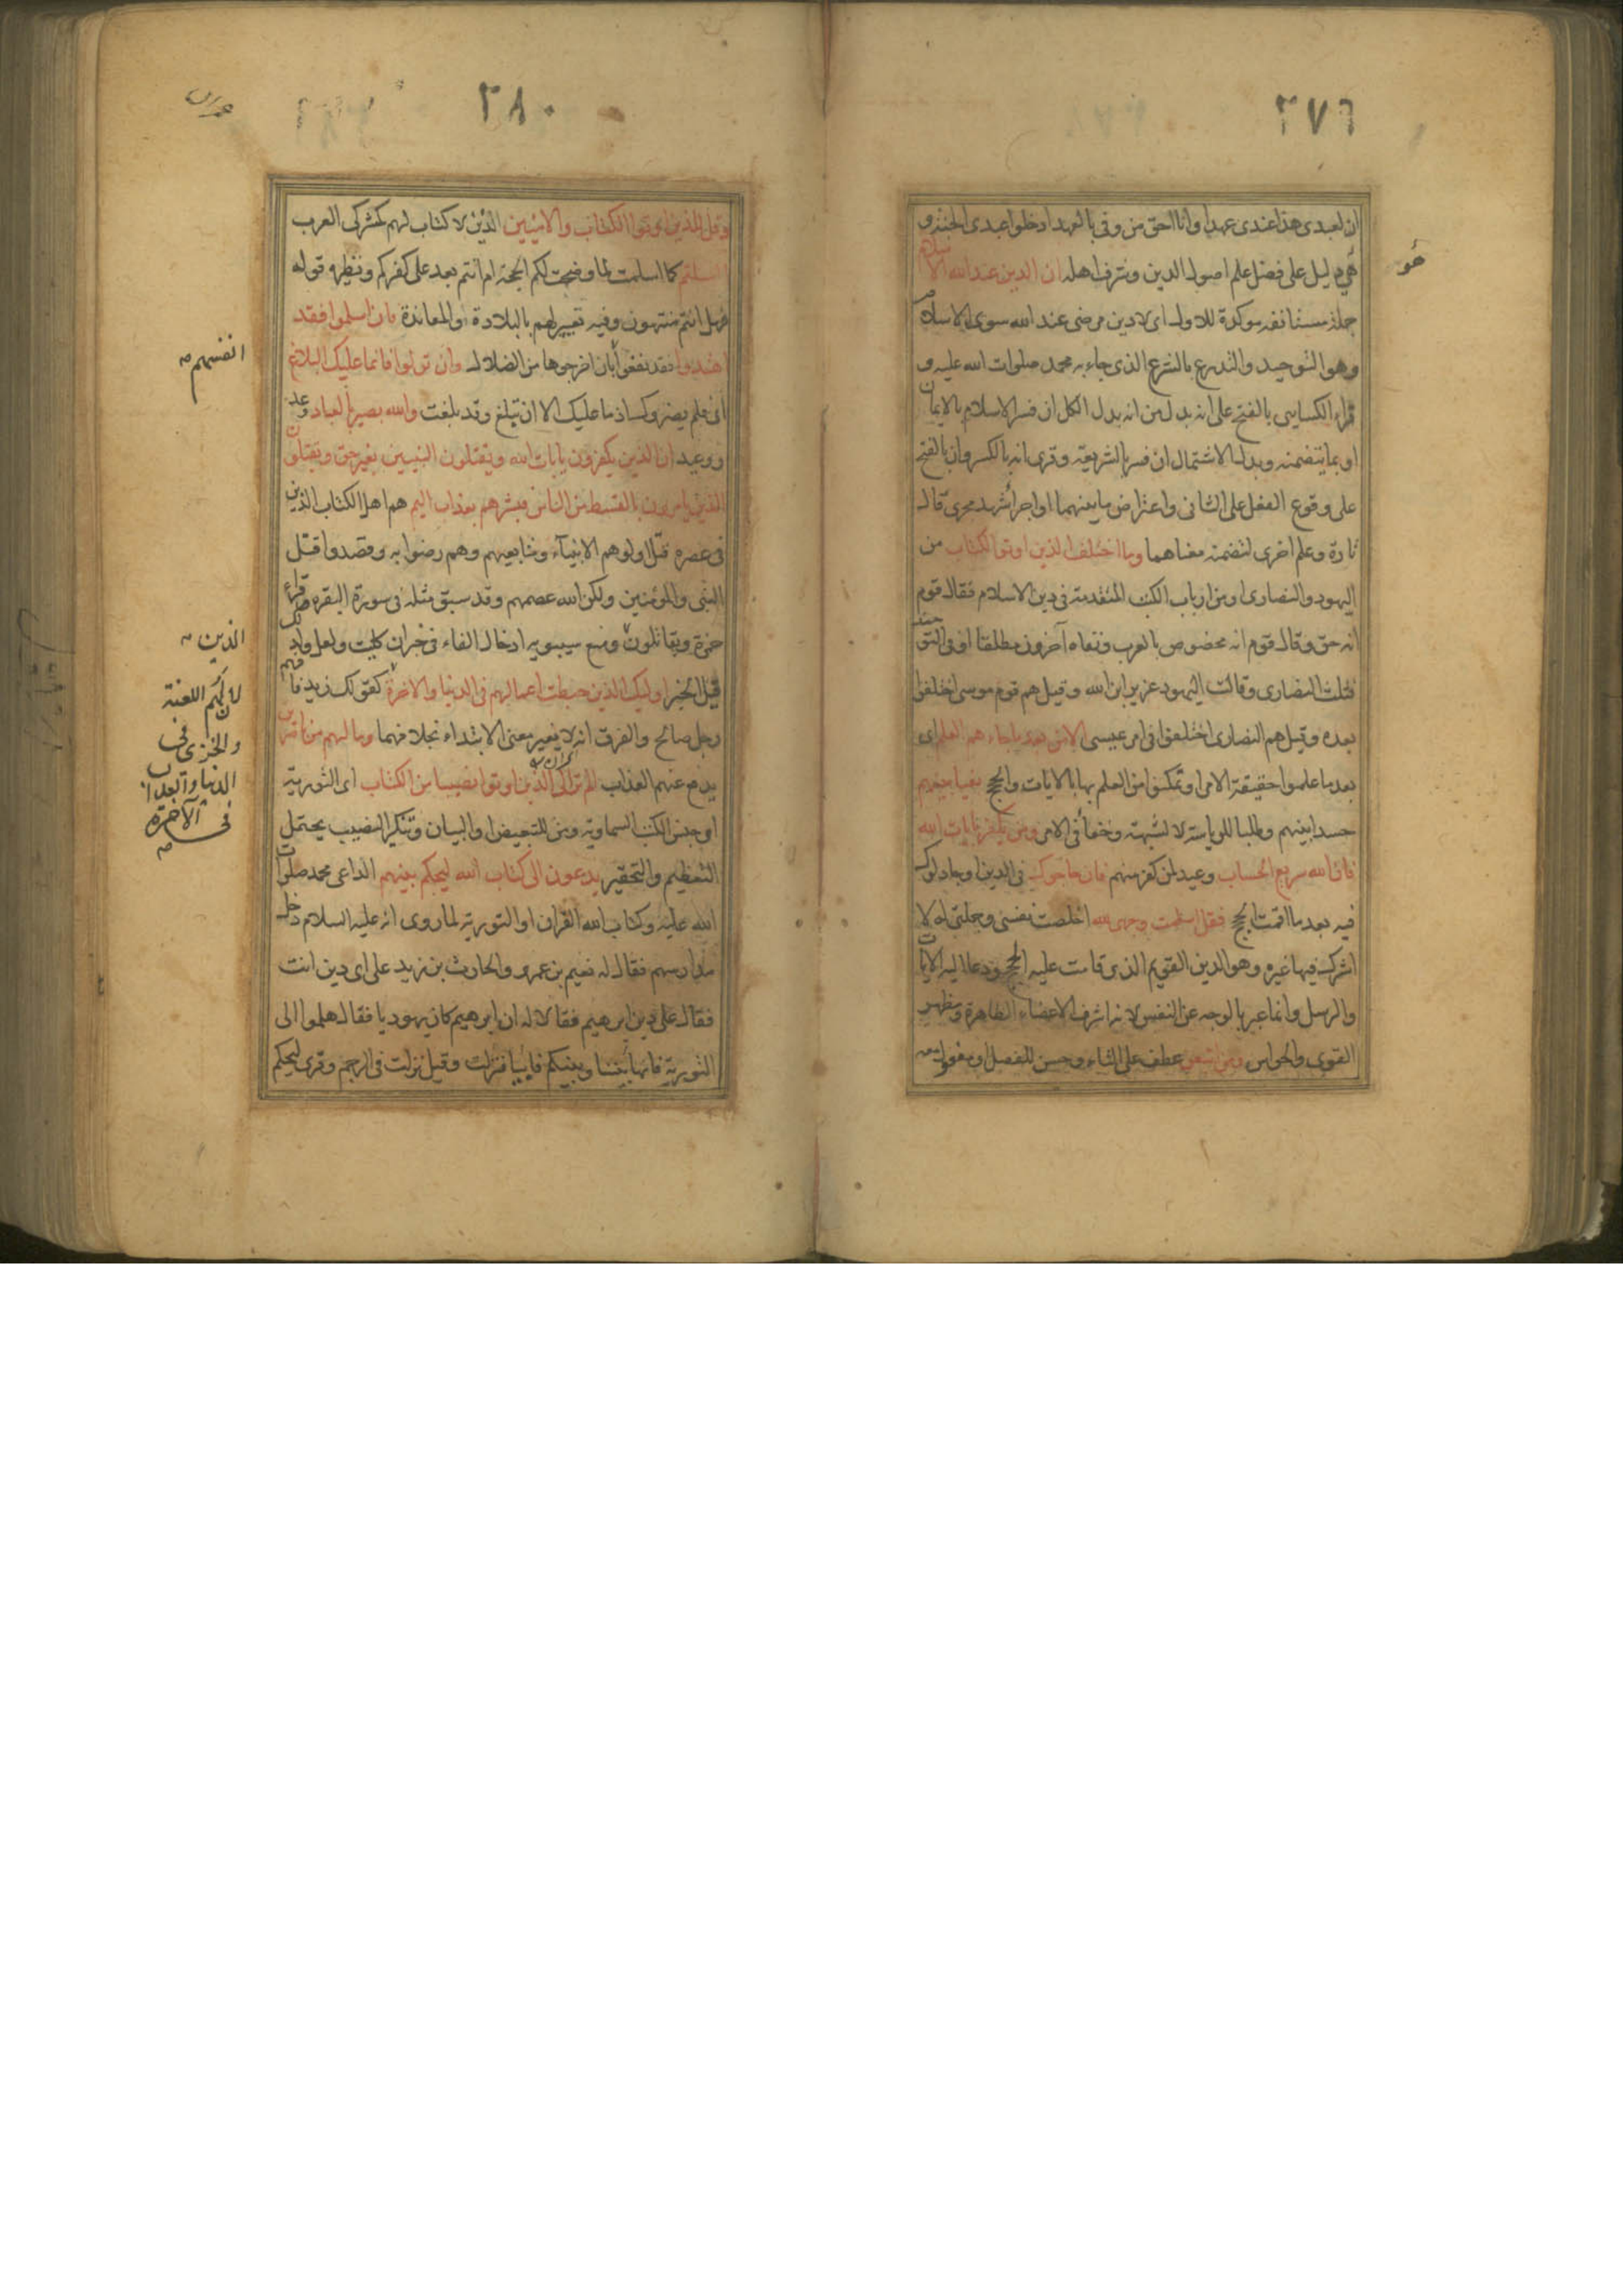 ٣٧٦
ان لعبدى هذا عندى عهدا وانا احق من وفى بالعهد ادخلوا عبدى الجنة و
هو
هى دليل على فضل علم اصول الدين وشرف اهله ان الدين عند الله الاسلام
جملة مستانفة موكدة للاولى اى لا دين مرضى عند الله سوى الاسلام
وهو التوحيد والتدرع بالشرع الذى جاء به محمد صلوات الله عليه و
قراء الكسايى بالفتح على انه بدل من انه بدل الكل ان فسر الاسلام بالايمان
او بما يتضمنه وبدل الاشتمال ان فسر بالشريعة وقرى انه بالكسر وان بالفتح
على وقوع الفعل على الثانى واعتراض ما بينهما او اجراء شهد مجرى قال
تارة وعلم اخرى لتضمنه معناهما وما اختلف الذين اوتوا الكتاب من
اليهود والنصارى او من ارباب الكتب المتقدمة فى دين الاسلام فقال قوم
انه حق وقال قوم انه مخصوص بالعرب ونفاه آخرون مطلقا او فى التوحيد
فثلث النصارى وقالت اليهود عزير ابن الله وقيل هم قوم موسى اختلفوا
بعده وقيل هم النصارى اختلفوا فى امر عيسى الا من بعد ما جاءهم العلم اى
بعد ما علموا حقيقة الامر او تمكنوا من العلم بها بالايات والحجج بغيا بينهم
حسدا بينهم وطلبا للرياسة لا لشبهة وخفاء فى الامر ومن يكفر بايات الله
فان الله سريع الحساب وعيد لمن كفر منهم فان حاجوك فى الدين او جادلوك
فيه بعد ما اقمت الحجج فقل اسلمت وجهى لله اخلصت نفسى وجملتى له لا
اشرك فيها غيره وهو الدين القويم الذى قامت عليه الحجج ودعا اليه الايات
والرسل وانما عبر بالوجه عن النفس لانه اشرف الاعضاء الظاهرة ومظهر
القوى والحواس ومن اتبعن عطف على التاء وحسن للفصل او مفعول معه
٣٨٠
وقل للذين اوتوا الكتاب والاميين الذين لا كتاب لهم كمشركى العرب
ءاسلمتم كما اسلمت لما وضحت لكم الحجة ام انتم بعد على كفركم ونظيره قوله
فهل انتم منتهون وفيه تعيير لهم بالبلادة او المعاندة فان اسلموا فقد
اهتدوا فقد نفعوا بان اخرجوها من الضلال وان تولوا فانما عليك البلاغ
انفسهم
اى فلم يضروك اذ ما عليك الا ان تبلغ وقد بلغت والله بصير بالعباد وعد
ووعيد ان الذين يكفرون بايات الله ويقتلون النبيين بغير حق ويقتلون
الذين يامرون بالقسط من الناس فبشرهم بعذاب اليم هم اهل الكتاب الذين
فى عصره قتل اولوهم الانبيآء ومتابعيهم وهم رضوا به وقصدوا قتل
النبى والمؤمنين ولكن الله عصمهم وقد سبق مثله فى سورة البقره وقراء
حمزة ويقاتلون ومنع سيبويه ادخال الفاء فى خبر ان كليت ولعل ولذلك
الذين
قيل الخبر اوليك الذين حبطت اعمالهم فى الدنيا والاخرة كقولك زيد فافهم
لان لهم اللعنة
والخزى فى
الدنيا والعذاب
فى الآخرة
رجل صالح والفرق انه لا يغير معنى الابتداء بخلافهما وما لهم من ناصرين
يدفع عنهم العذاب الم تر الى الذين اوتوا نصيبا من الكتاب اى التورية
او جنس الكتب السماوية ومن للتبعيض او البيان وتنكير النصيب يحتمل
التعظيم والتحقير يدعون الى كتاب الله ليحكم بينهم الداعى محمد صلوات
الله عليه وكتاب الله القران او التورية لما روى انه عليه السلام دخل
مدارسهم فقال له نعيم بن عمرو والحارث بن زيد على اى دين انت
فقال على دين ابرهيم فقالا له ان ابرهيم كان يهوديا فقال هلموا الى
التورية فانها بيننا وبينكم فابيا فنزلت وقيل نزلت فى الرجم وقرى ليحكم